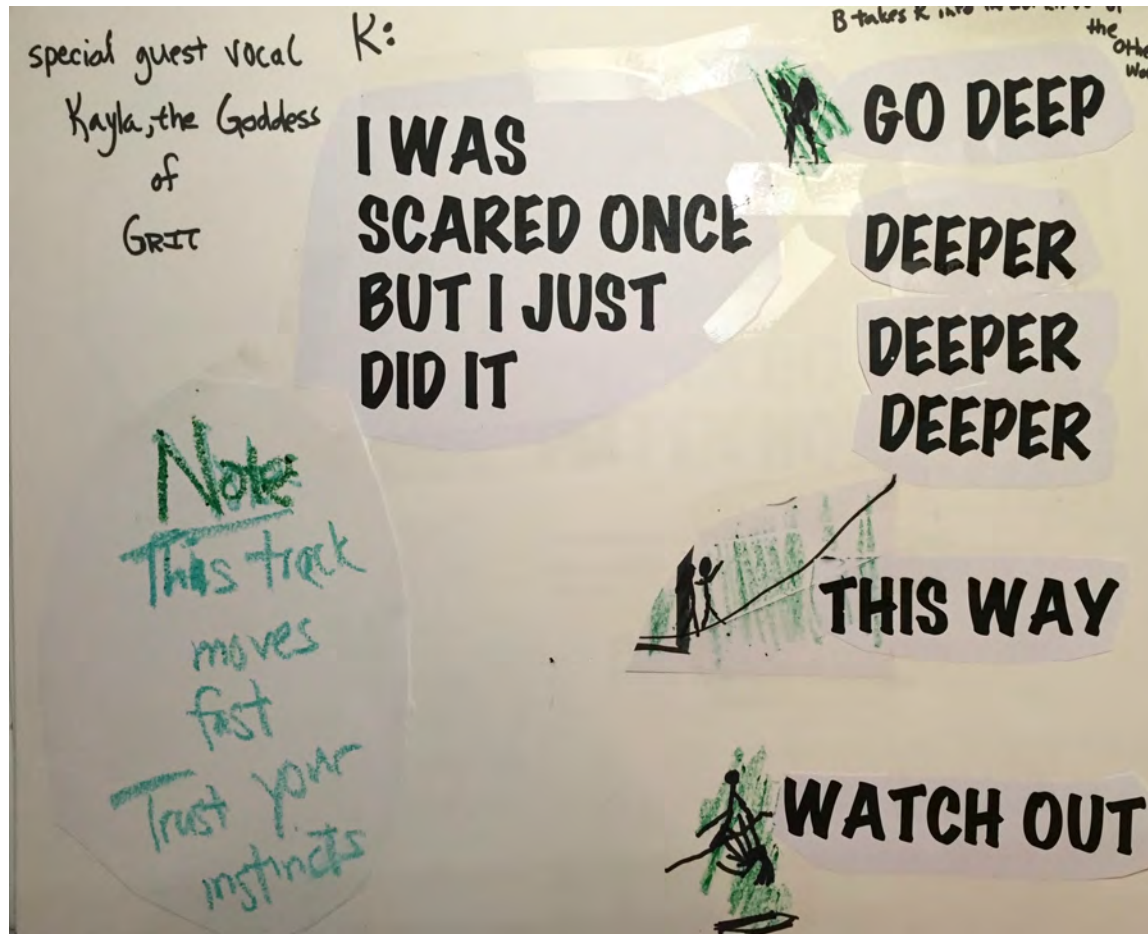 special guest vocal
Kayla, the Goddess
of
GRIT
K:
I WAS
SCARED ONCE
BUT I JUST
DID IT
Note:
This track
moves
fast
Trust your
instincts
B takes K into
the
GO DEEP
DEEPER
DEEPER
DEEPER
THIS WAY
WATCH OUT